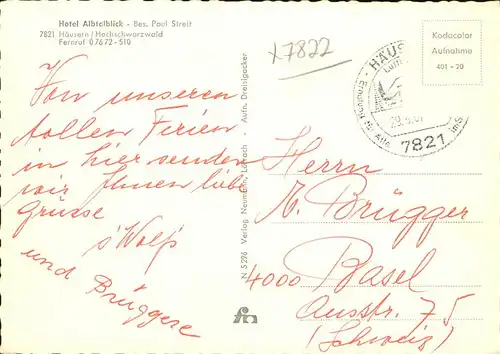 Hotel Albtalblick - Bes. Paul Streit
7821 Häusern / Hochschwarzwald
Fernruf 07672 - 510
x7822
Kodacolor
Aufnahme
401 - 20
HÄUS
Luft
Erholung für Alle
7821
Von unseren
tollen Ferien
in hier senden
wir Ihnen liebe
Grüsse
s'Wolf's
und Brüggere
N 5296 Verlag Neumann, Lörrach - Aufn. Dreihigacker
Herrn
M. Brügger
4000 Basel
Ausstr. 75
(Schweiz)